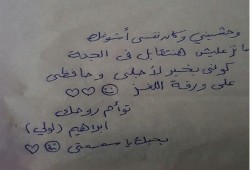 وحشتيني وكان نفسي أشوفك
ماتزعليش هنتقابل في الجنة
كوني بخير لأجلي وحافظي
على ورقة اللغز 🙂♡♡
توأم روحك
ابراهيم (لولي)
بحبك يا سمسمتي 🙂♡